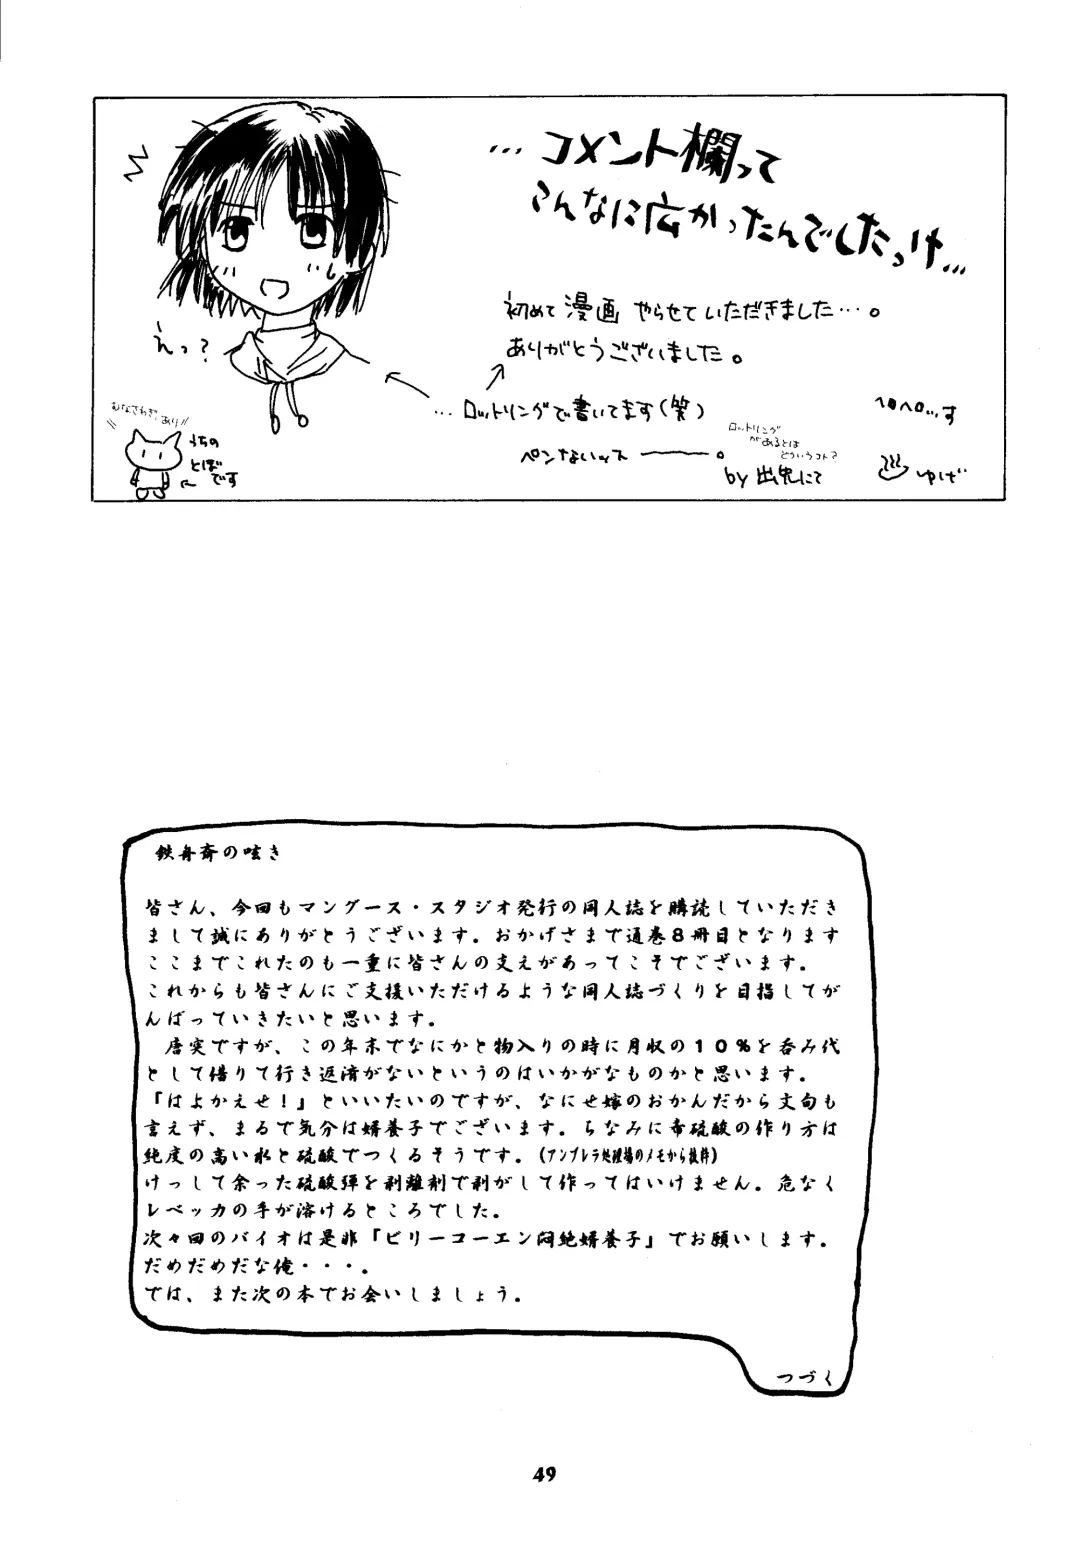 …コメント欄って
こんなに広かったんでしたっけ…
初めて漫画 やらせていただきました…。
ありがとうございました。
えっ?
…ロットリングで書いてます(笑)
ヘロヘロッす
むなさわぎ、あり//
うちの
とぼ
です
ペンないッス ―――。
ロットリング
があるとは
どういうコト?
by 出先にて
ゆげ
鉄舟斎の呟き
皆さん、今回もマングース・スタジオ発行の同人誌を購読していただき
まして誠にありがとうございます。おかげさまで通巻8冊目となります
ここまでこれたのも一重に皆さんの支えがあってこそでございます。
これからも皆さんにご支援いただけるような同人誌づくりを目指してが
んばっていきたいと思います。
唐突ですが、この年末でなにかと物入りの時に月収の10%を呑み代
として借りて行き返済がないというのはいかがなものかと思います。
『はよかえせ!』といいたいのですが、なにせ嫁のおかんだから文句も
言えず、まるで気分は婿養子でございます。ちなみに希硫酸の作り方は
純度の高い水と硫酸でつくるそうです。(アンブレラ処理場のメモから抜粋)
けっして余った硫酸弾を剥離剤で剥がして作ってはいけません。危なく
レベッカの手が溶けるところでした。
次々回のバイオは是非『ビリーコーエン悶絶婿養子』でお願いします。
だめだめだな俺・・・。
では、また次の本でお会いしましょう。
つづく
49